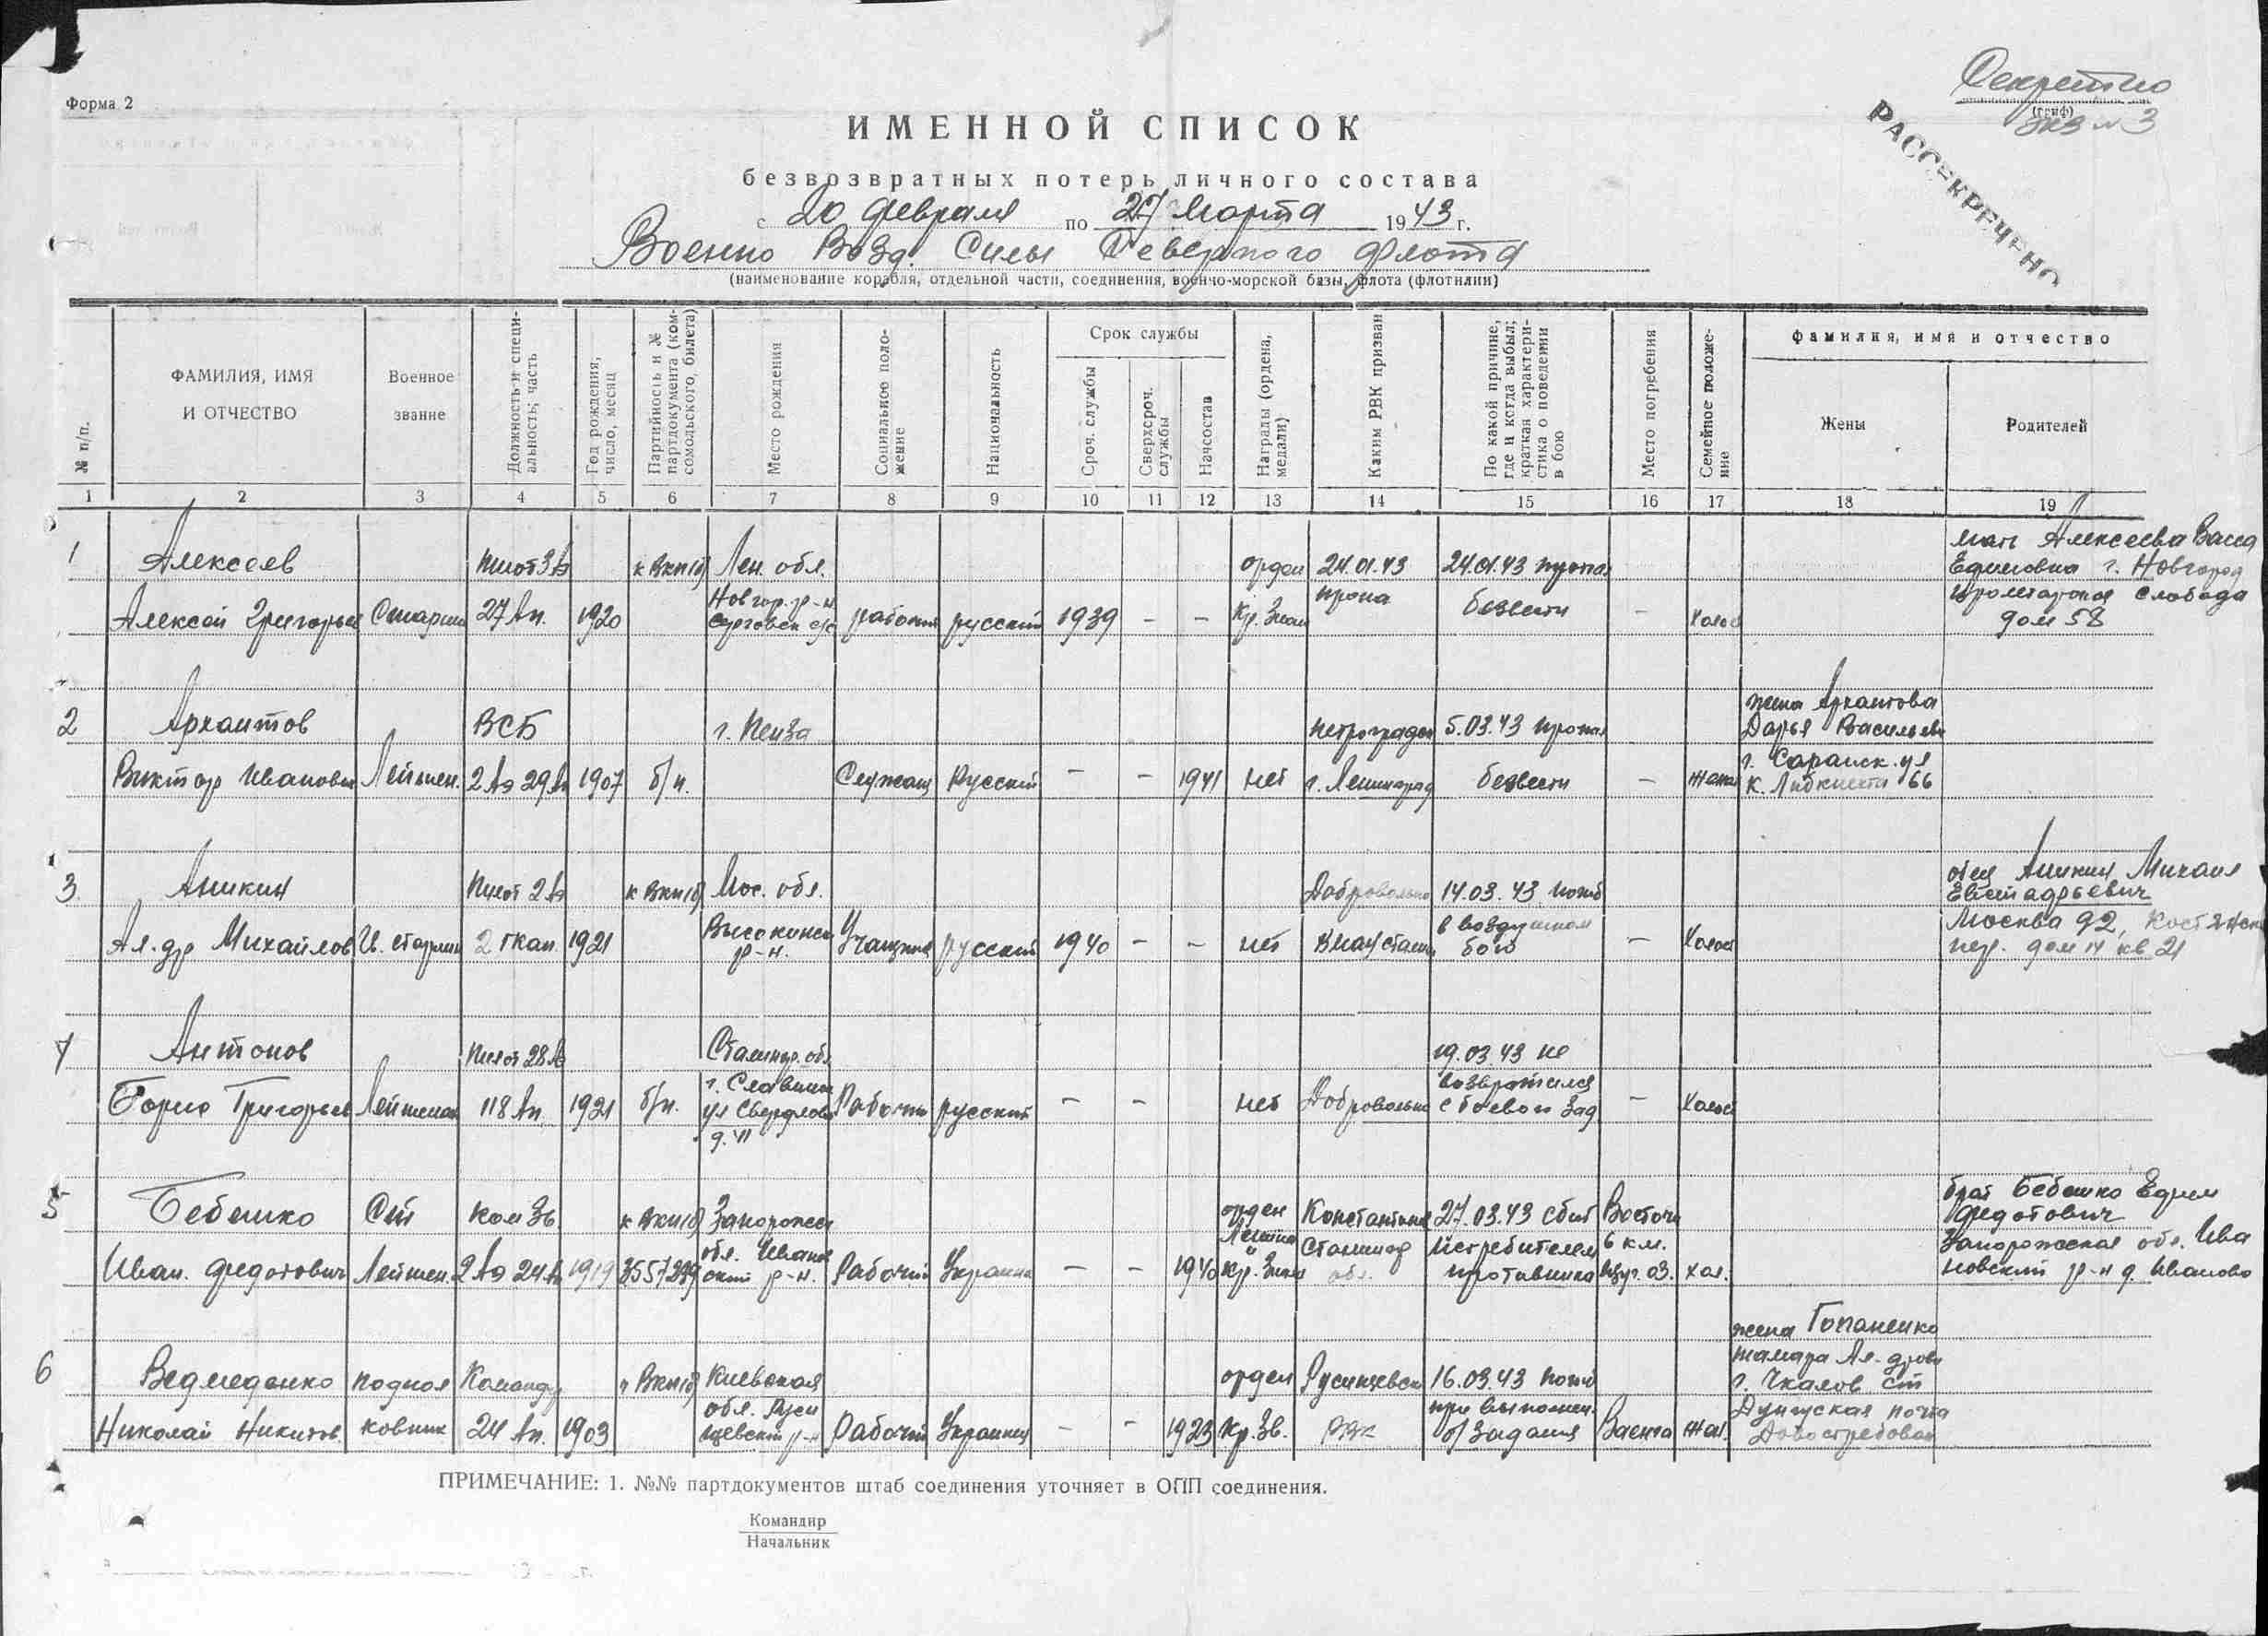 Форма 2
Секретно
(гриф)
экз № 3
РАССЕКРЕЧЕНО
ИМЕННОЙ СПИСОК
безвозвратных потерь личного состава
с 20 февраля по 27 марта 1943 г.
Военно Возд. Силы Северного Флота
(наименование корабля, отдельной части, соединения, военно-морской базы, флота (флотилии)
№ п/п.
ФАМИЛИЯ, ИМЯ
И ОТЧЕСТВО
Военное
звание
Должность и специ-
альность; часть
Год рождения,
число, месяц
Партийность и №
партдокумента (ком-
сомольского, билета)
Место рождения
Социальное поло-
жение
Национальность
Срок службы
Сроч. службы
Сверхсроч.
службы
Начсостав
Награды (ордена,
медали)
Каким РВК призван
По какой причине,
где и когда выбыл;
краткая характери-
стика о поведении
в бою
Место погребения
Семейное положе-
ние
фамилия, имя и отчество
Жены
Родителей
1 2 3 4 5 6 7 8 9 10 11 12 13 14 15 16 17 18 19
1 Алексеев
Алексей Григорьев
Старшин
Пилот 3 Аэ
27 Ап.
1920
к ВКП(б)
Лен. обл.
Новгор. р-н
рабочий
русский
1939
–
–
орден
Кр. Знам
24.01.43
пропа
24.01.43 пропал
безвести
–
Холос
мать Алексеева Васса
Ефимовна г. Новгород
пролетарская слобода
дом 58
2 Архаитов
Виктор Иванович
Лейтен.
ВСБ
2 Аэ 29 Ап
1907
б/п.
г. Пенза
Служащ
Русский
–
–
1941
нет
петроградск
г. Ленинград
5.03.43 пропал
безвести
–
женат
жена Архаитова
Дарья Васильев
г. Саранск. ул
К. Либкнехта 66
3 Аникин
Ал-др Михайлов
И. старшин
Пилот 2 Аэ
2 гкап.
1921
к ВКП(б)
Мос. обл.
р-н.
Учащийся
русский
1940
–
–
нет
Добровольно
ВМАУ Сталин
14.03.43 погиб
в воздушном
бою
–
Холост
отец Аникин Михаил
Москва 92,
пер. дом 14 кв 21
4 Антонов
Борис Григорьев
Лейтенан
Пилот 28 Аэ
118 Ап.
1921
б/п.
Сталингр. обл
ул Свердлова
д. 41
Рабочий
русский
–
–
нет
Добровольно
19.03.43 не
возвратился
с боевого зад
–
Холост
5 Бебешко
Иван. Федотович
Ст
Лейтен.
Ком Зв.
2 Аэ 24 Ап
1919
к ВКП(б)
3557239
Запорожск
обл. Иванов
ский р-н.
Рабочий
Украинец
–
–
1940
орден
Ленина
" Кр. Знам
Константинов
Сталинод
обл.
27.03.43 сбит
истребителем
противника
Восточн
6 км.
оз.
хол.
брат Бебешко Ефрем
Федотович
Запорожская обл. Ива
новский р-н д. Иваново
6 Ведмеденко
Николай Никитов.
подпол
ковник
Командир
24 Ап.
1903
ч ВКП(б)
Киевская
р-н
Рабочий
Украинец
–
–
1923
орден
Кр. Зв.
РВК
16.03.43 погиб
при выполнен.
б/задания
Ваенга
жен.
жена Гопаненко
тамара Ал-дров
г. Чкалов ст
почта
До востребован
ПРИМЕЧАНИЕ: 1. №№ партдокументов штаб соединения уточняет в ОПП соединения.
Командир
Начальник